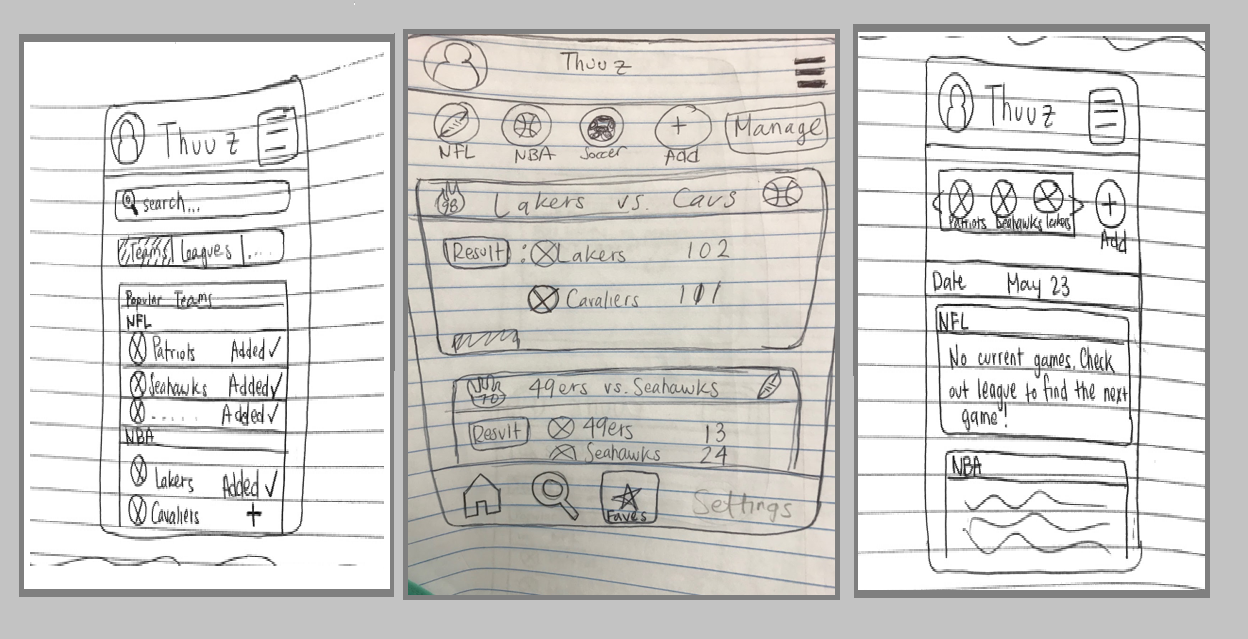 Thuuz
search...
Teams Leagues ....
Popular Teams
NFL
Patriots Added ✓
Seahawks Added ✓
..... Added ✓
NBA
Lakers Added ✓
Cavaliers +
Thuuz
NFL NBA Soccer + Add Manage
98 Lakers vs. Cavs
Result : Lakers 102
Cavaliers 101
70 49ers vs. Seahawks
Result 49ers 13
Seahawks 24
Faves Settings
Thuuz
Patriots Seahawks Lakers + Add
Date May 23
NFL
No current games. Check
out league to find the next
game!
NBA